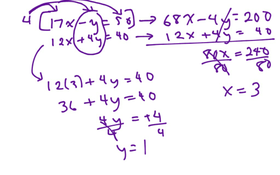 4 [17x - y = 50] → 68x - 4y = 200
12x + 4y = 40 → 12x + 4y = 40
80x = 240
80 80
x = 3
12(3) + 4y = 40
36 + 4y = 40
4y = +4
4 4
y = 1